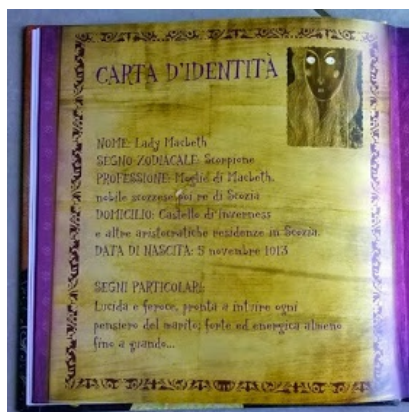 CARTA D'IDENTITÀ
NOME: Lady Macbeth
SEGNO ZODIACALE: Scorpione
PROFESSIONE: Moglie di Macbeth,
nobile scozzese poi re di Scozia
DOMICILIO: Castello di Inverness
e altre aristocratiche residenze in Scozia.
DATA DI NASCITA: 5 novembre 1013
SEGNI PARTICOLARI:
Lucida e feroce, pronta a intuire ogni
pensiero del marito; forte ed energica almeno
fino a quando...